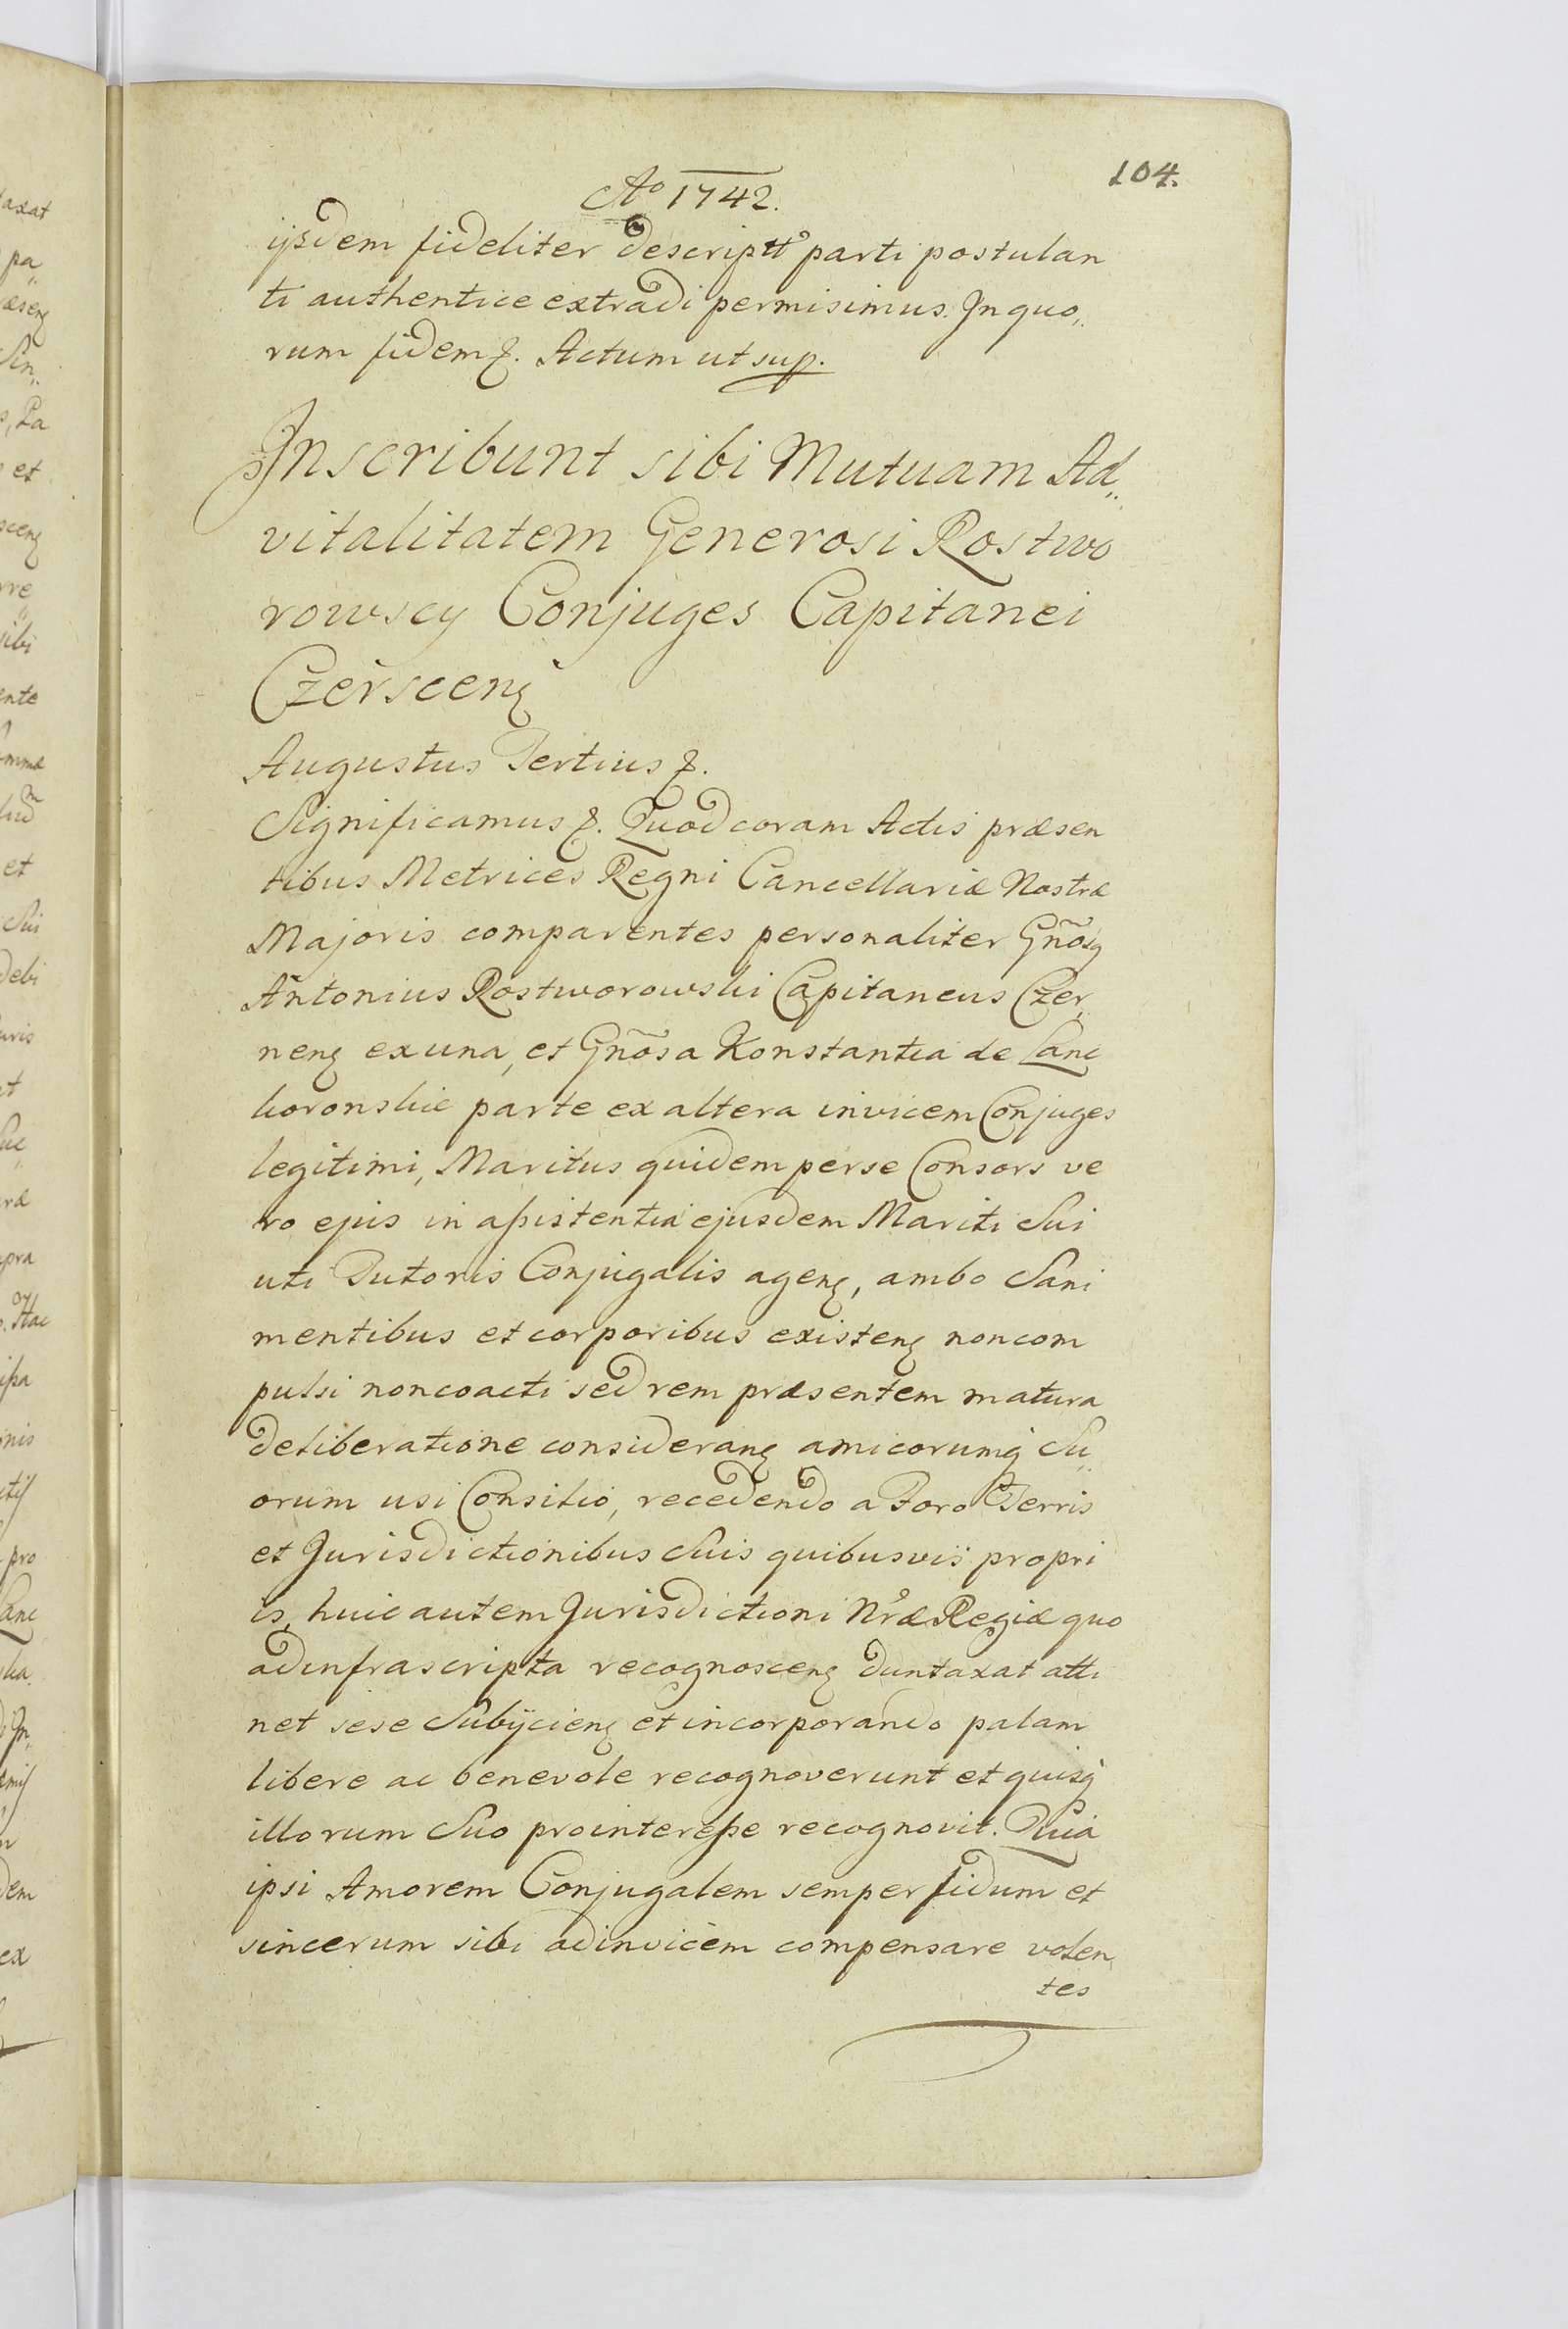 104.
Aº 1742.
ijsdem fideliter descriptº parti postulan
ti authentice extradi permisimus. In quo„
rum fidem &. Actum ut sup.
Inscribunt sibi Mutuam Ad„
vitalitatem Generosi Rostwo
rowscy Conjuges Capitanei
Czerscen̨
Augustus Tertius &.
Significamus &. Quod coram Actis præsen
tibus Metrices Regni Cancellariæ Nostræ
Majoris comparentes personaliter Gñosq
Antonius Rostworowski Capitaneus Czer„
nen̨ ex una, et Gñosa Konstantia de Lanc
koronskie parte ex altera invicem Conjuges
legitimi, Maritus quidem per se Consors ve
ro ejus in assistentia ejusdem Mariti Sui
uti Tutoris Conjugalis agen̨, ambo Sani
mentibus et corporibus existen̨ non com
pulsi non coacti sed rem præsentem matura
deliberatione consideran̨ amicorumq Su„
orum usi Consilio, recedendo a Foro Terris
et Jurisdictionibus Suis quibusvis propri
is, huic autem Jurisdictioni Nræ Regiæ quo
ad infrascripta recognoscen̨ duntaxat atti
net sese Subijcien̨ et incorporando palam
libere ac benevole recognoverunt et quisq
illorum Suo pro interesse recognovit. Quia
ipsi Amorem Conjugalem semper fidum et
sincerum sibi adinvicem compensare volen
tes